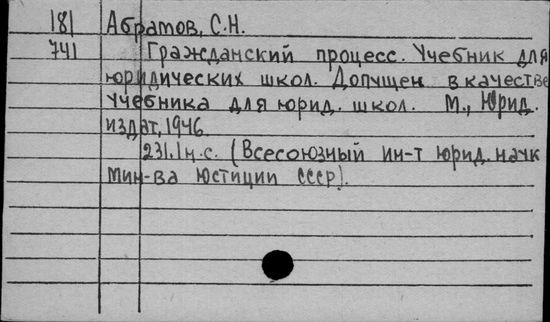 181 Абрамов, С.Н.
741 Гражданский процесс. Учебник для
юридических школ. Допущен в качестве
учебника для юрид. школ. М., Юрид.
издат, 1946.
231. 1н.с. (Всесоюзный ин-т юрид. наук
Мин-ва юстиции СССР).